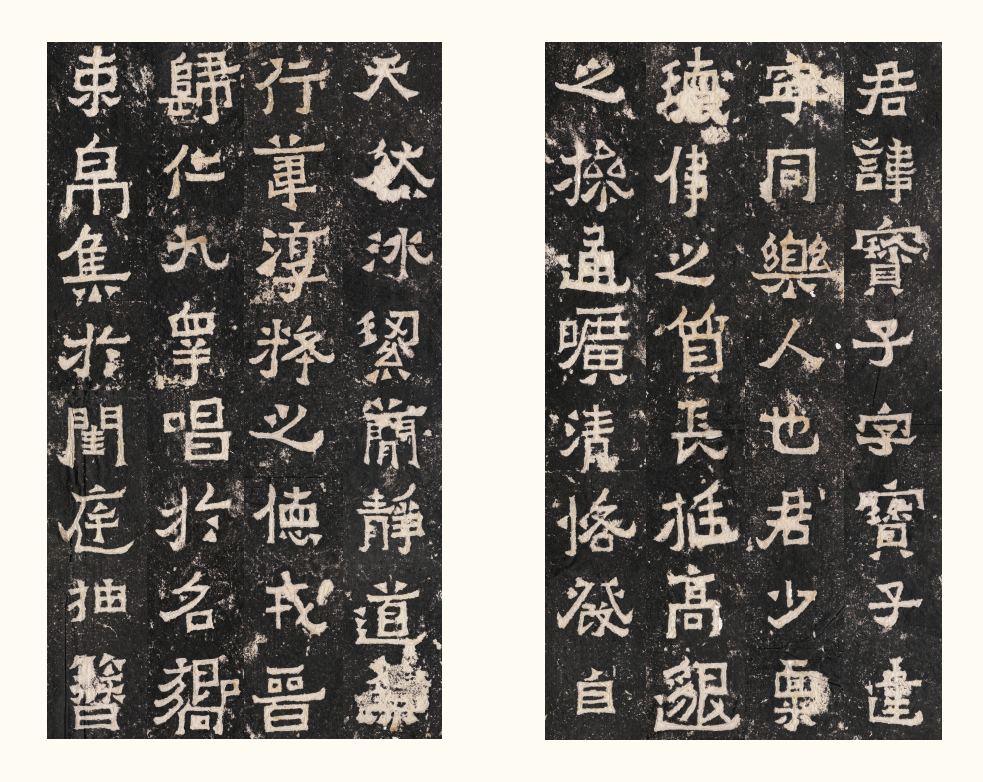 君諱寶子字寶子建
寧同樂人也君少稟
瓌偉之質長挺高邈
之操通曠清恪發自
天然冰潔簡靜道兼
行葦淳粹之德戎晉
歸仁九皋唱於名嚮
束帛集於閨庭抽簪